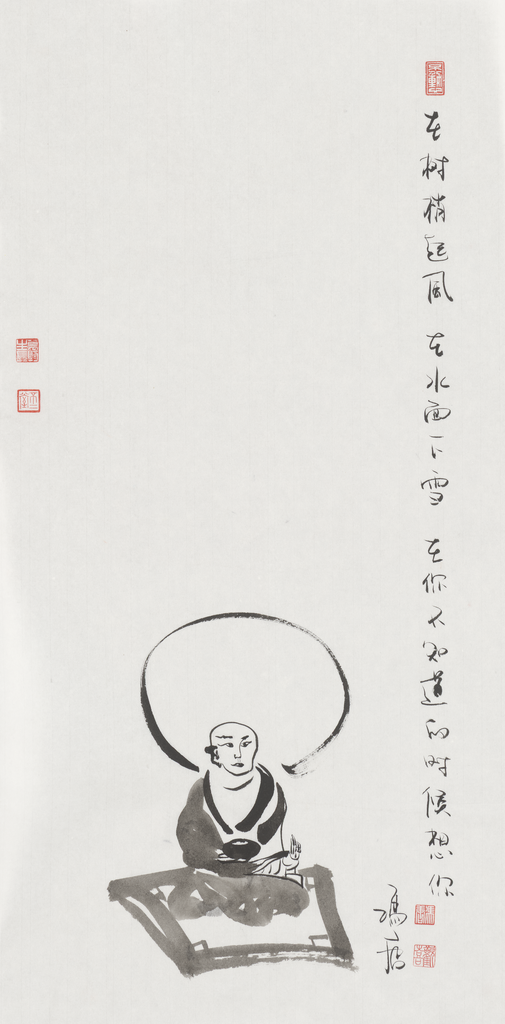 在树梢起风 在水面下雪 在你不知道的时候想你